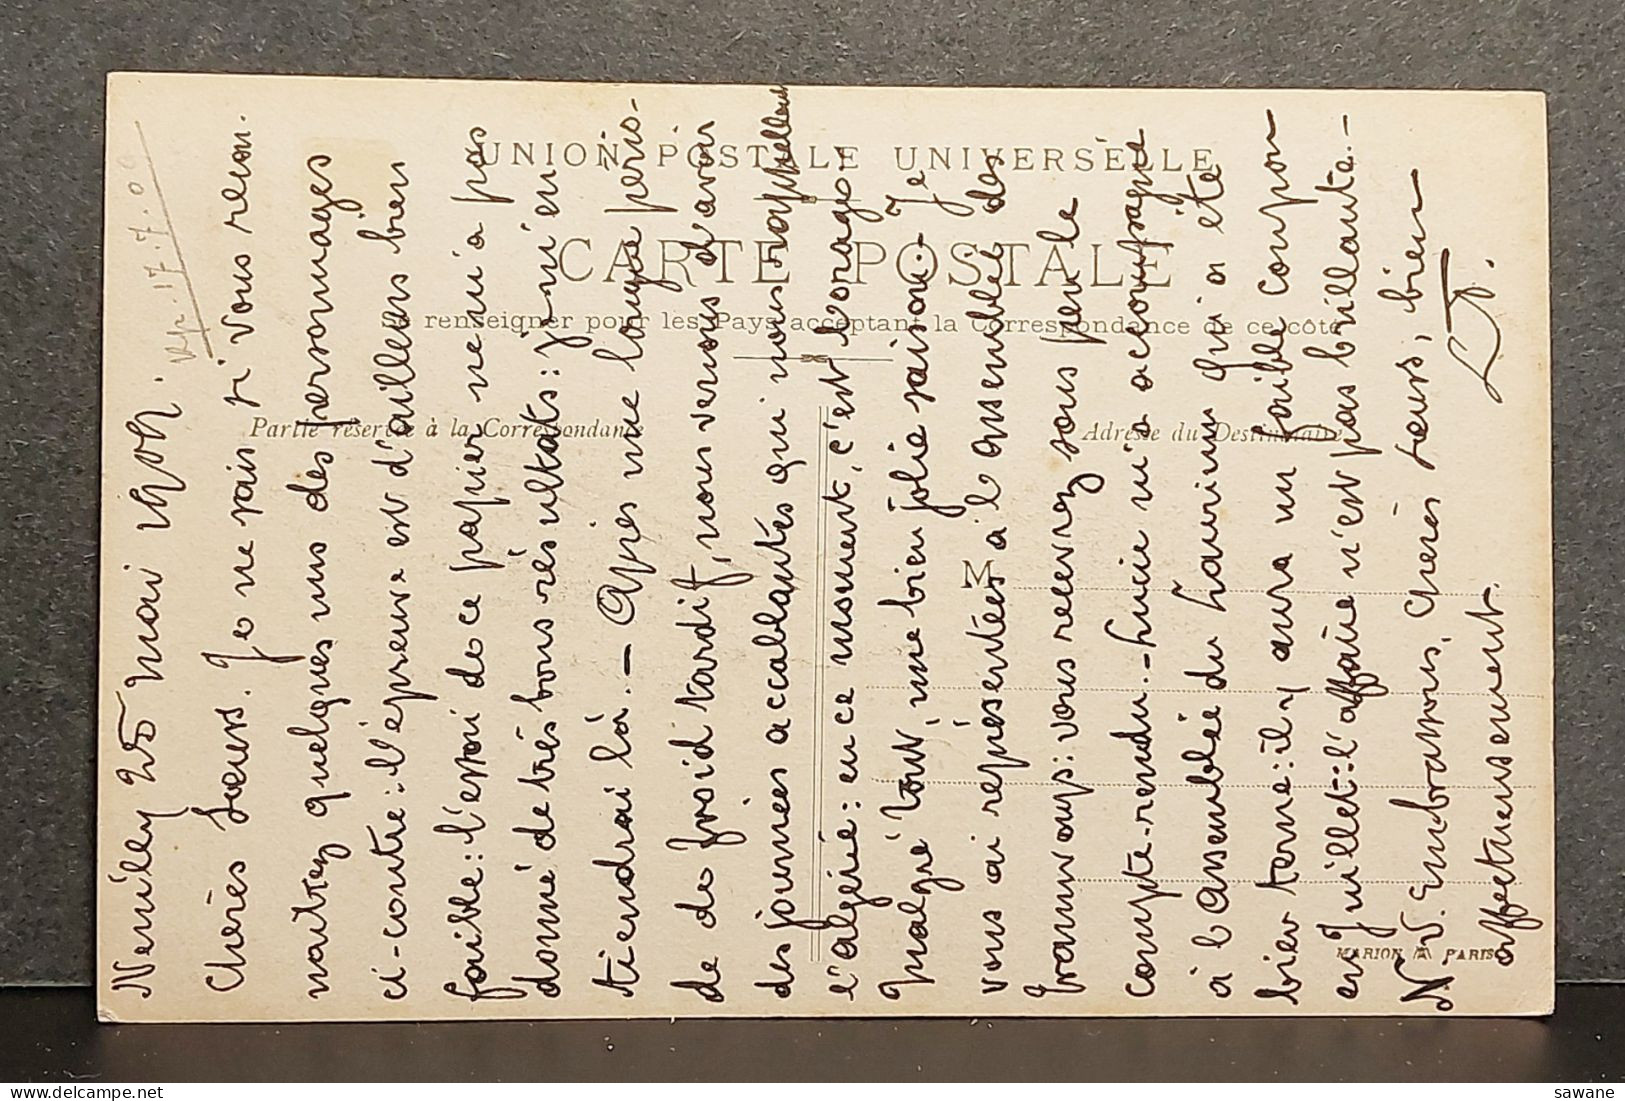 Neuilly 25 mai 1909.
Rp. 17.7.09
Chères Sœurs. Je ne sais si vous recon-
naitrez quelques uns des personnages
ci-contre : l'épreuve est d'ailleurs bien
faible : l'essai de ce papier ne m'a pas
donné de très bons résultats : je m'en
tiendrai là. — Après une longue pério-
de de froid tardif, nous venons d'avoir
des journées accablantes qui nous rappellent
l'Algérie : en ce moment, c'est l'orage.
Malgré tout, une bien jolie saison. - Je
vous ai représentées à l'assemblée des
françaises : vous recevrez sous peu le
compte-rendu. - Lucie m'a accompagné
à l'Assemblée du Souvenir qui a été
bien terne : il y aura un faible coupon
en Juillet : l'affaire n'est pas brillante. -
N. v. embrassons, chères Sœurs, bien
affectueusement.
UNION POSTALE UNIVERSELLE
CARTE POSTALE
Se renseigner pour les Pays acceptant la Correspondance de ce côté
Partie réservée à la Correspondance
Adresse du Destinataire
M
MARION PARIS
sawane